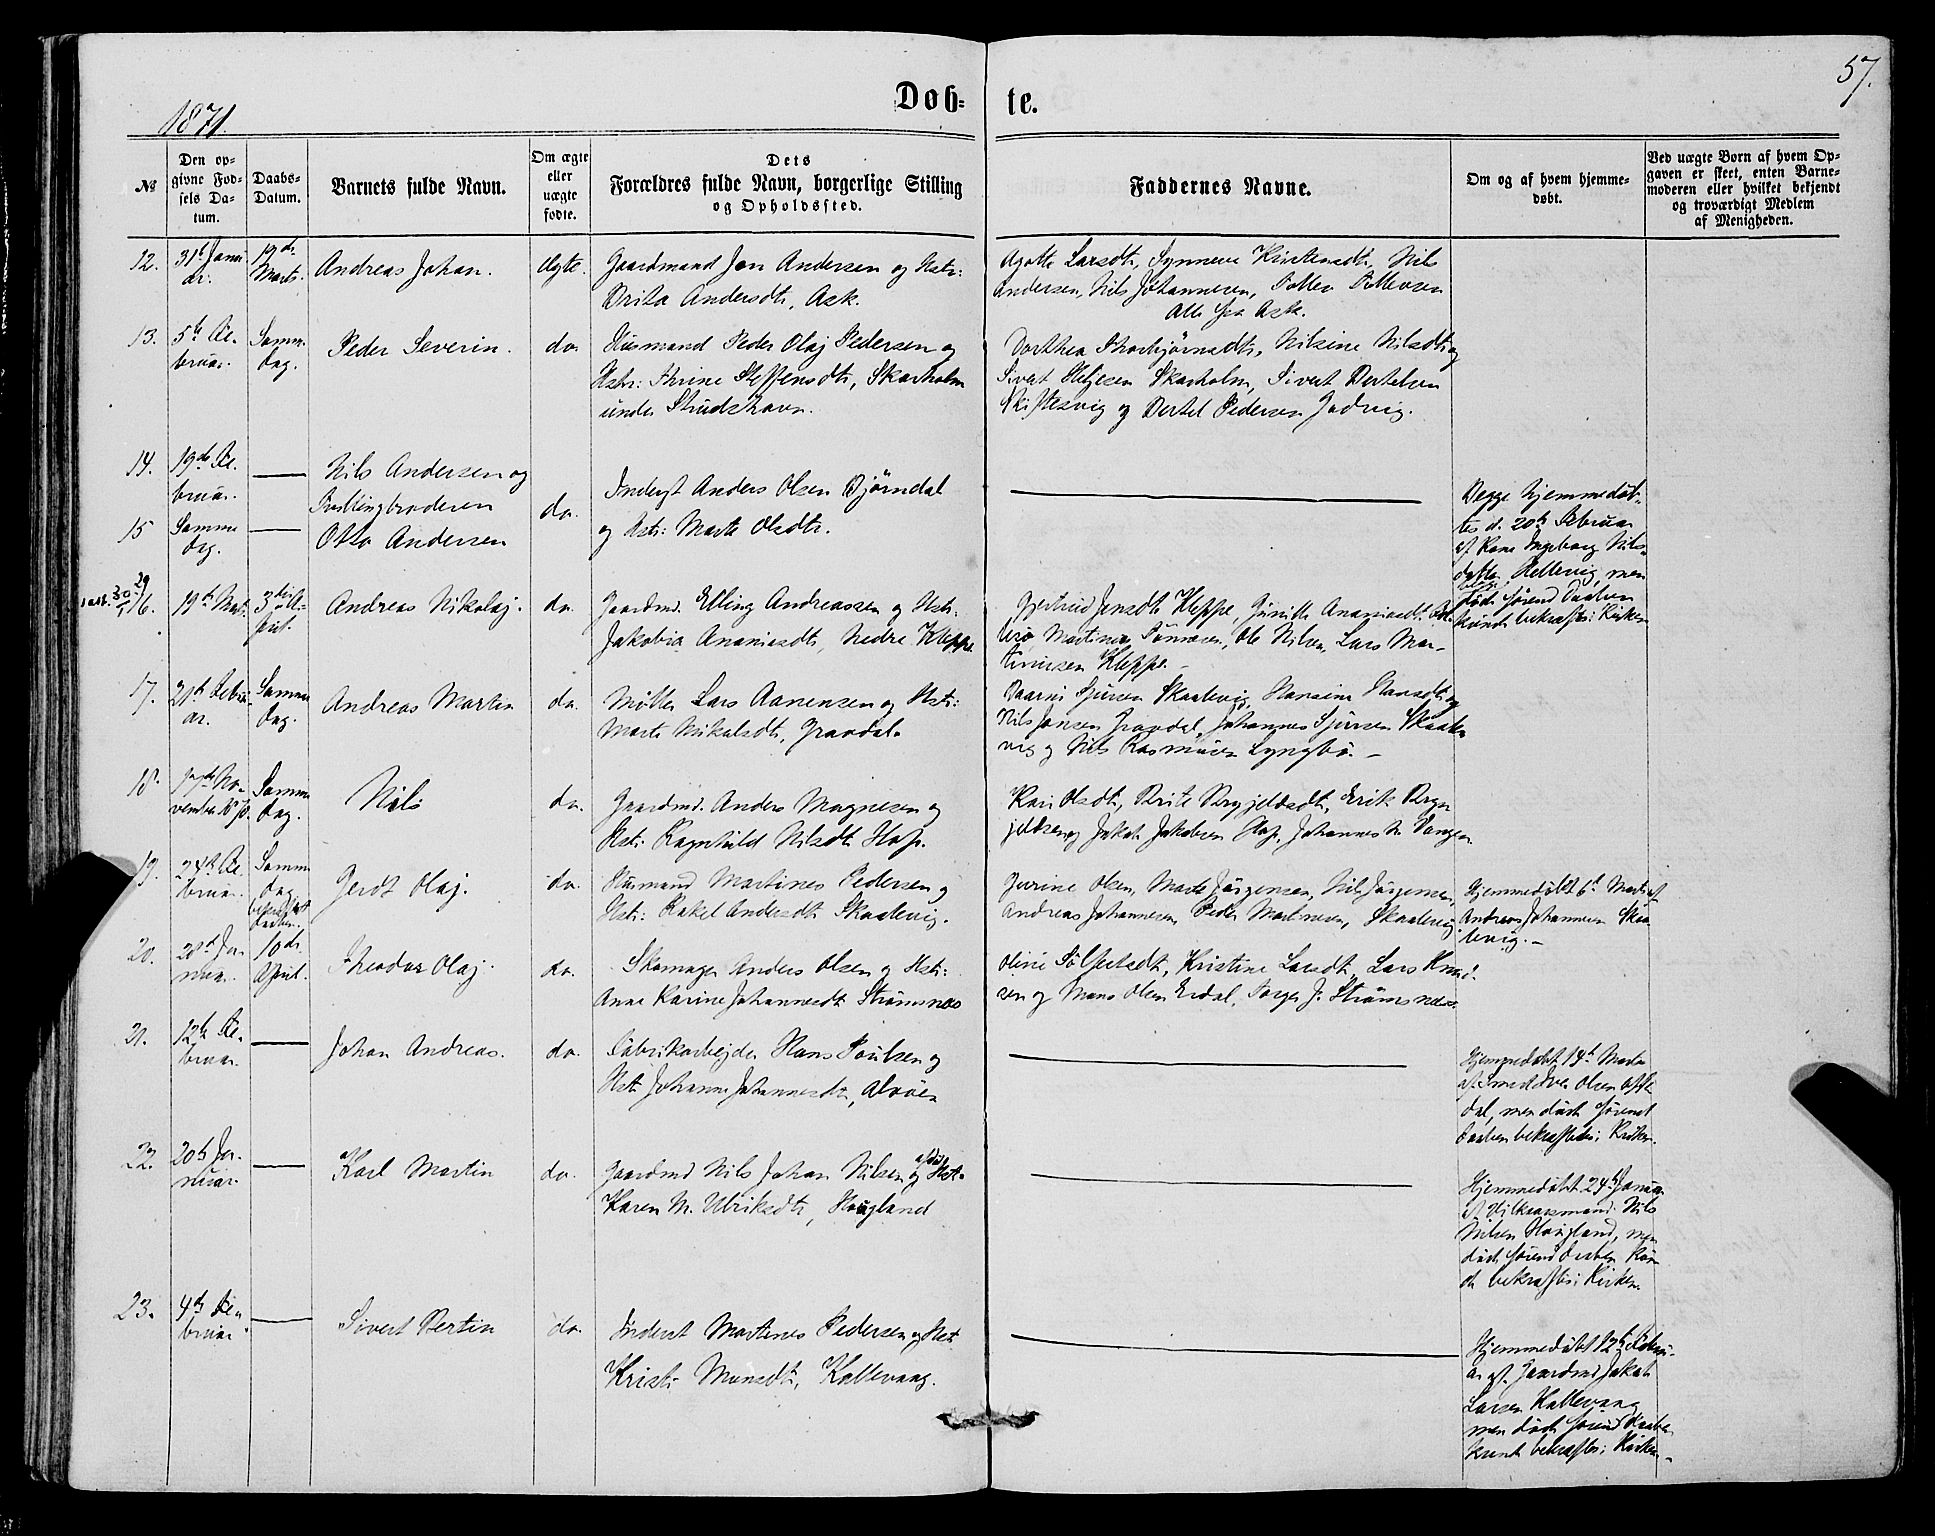 57.
1871.
Døb- te.
№
Den op-
givne Fød-
sels Da-
tum.
Daabs-
Datum.
Barnets fulde Navn.
Om ægte
eller
uægte
fødte.
Dets
Forældres fulde Navn, borgerlige Stilling
og Opholdssted.
Faddernes Navne.
Om og af hvem hjemme-
døbt.
Ved uægte Børn af hvem Op-
gaven er skeet, enten Barne-
moderen eller hvilket bekjendt
og troværdigt Medlem
af Menigheden.
12.
31te Janu-
ar.
19de
Marts.
Andreas Johan.
Ægte.
Gaardmand Jon Andersen og Hstr:
Brita Andersdtr, Ask.
Agathe Larsdtr, Synneve Nils
Andersen, Nils Johannesen,
Alle fra Ask.
13.
5te Fe-
bruar.
Samme
dag.
Peder Severin.
do.
Husmand Peder Olaj Pedersen og
Hstr: Thrine Steffensdtr, Skarholm
under Strudshavn.
Dorthea Nilsine Nilsdtr
Sivert Skarholm, Sivert Bertelsen
og Bertel Pedersen
14.
19de Fe-
bruar.
—
Nils Andersen og
Tvillingbroderen
do.
Inderst Anders Olsen Bjørndal
og Hstr: Marte Olsdtr.
Begge hjemmedøb-
tes d. 20de Februar
af Kone Ingeborg Nils-
datter Hellevig, men
døde førend Daaben
kunde bekræftes i Kirken
15
Samme
dag.
—
Otto Andersen
16.
19de Marts
3die A-
pril.
Andreas Nikolaj.
do.
Gaardmd. Elling Andreassen og Hstr.
Jakobia Ananiasdtr, Nedre Kleppe.
Gjertrud Jensdtr Kleppe, Ananiasdtr
Ole Nilsen, Lars Mar-
tinusen Kleppe.
17.
21de Febru-
ar.
Samme
dag.
Andreas Martin
do.
Møller Lars Aanensen og Hstr:
Marte Nikolsdtr, Gravdal.
Sjursen Skaalevig, Hansine Hansdtr
Nils Jansen Gravdal, Johannes Sjursen Skaale-
vig og Nils Rasmusen Lyngbø.—
18.
17de No-
vember 1870.
Samme
dag.
Nils
do.
Gaardmd. Anders Magnesen og
Hstr: Ragnhild Nilsdtr Hop.
Kari Olsdtr, Brite Erik
og Jakob Jakobsen Hop, Johannes
19.
24de Fe-
bruar.
Samme
dag
Gerdt Olaj.
do.
Husmand Martines Pedersen og
Hstr: Rakel Andersdtr Skaalevig.
Gurine Olsen, Marte Jørgensen, Nils Jørgensen,
Andreas Johannesen, Peder Martinesen, Skaalevig
Hjemmedøbt 6te Marts af
Andreas Johannesen Skaa-
levig.—
20.
28de Ja-
nuar.
10de
April.
Theodor Olaj.
do.
Skomager Anders Olsen og Hstr:
Anne Karine Johannesdtr Strømsnæs
Oline Kristine Larsdtr, Lars Knud-
sen og Mons Olsen Erdal, Torger J. Strømsnæs.
21.
12te Fe-
bruar.
—
Johan Andreas.
do.
Fabrikarbejder Hans Poulsen og
Hstr Johanne Johannesdtr, Alvøen
Hjemmedøbt 14de Marts
af Smed Iver Olsen
dal, men døde førend
Daaben bekræftedes i Kirken.
22.
20de Ja-
nuar.
—
Karl Martin
do.
Gaardmd Nils Johan Nilsen og afdøde Hstr.
Karen M. Ulriksdtr, Haugland
Hjemmedøbt 24de Januar
af Nils
Nilsen Haugland, men
døde førend Daaben kun-
de bekræftes i Kirken.
23.
4de Fe-
bruar
—
Sivert Bertin
do.
Inderst Martines Pedersen og Hstr
Kristi Monsdtr, Kallevaag.
Hjemmedøbt 12te Febru-
ar af Gaardmd Jakob
Larsen Kallevaag
men døde førend Daaben
kunde bekræftes i Kirken.